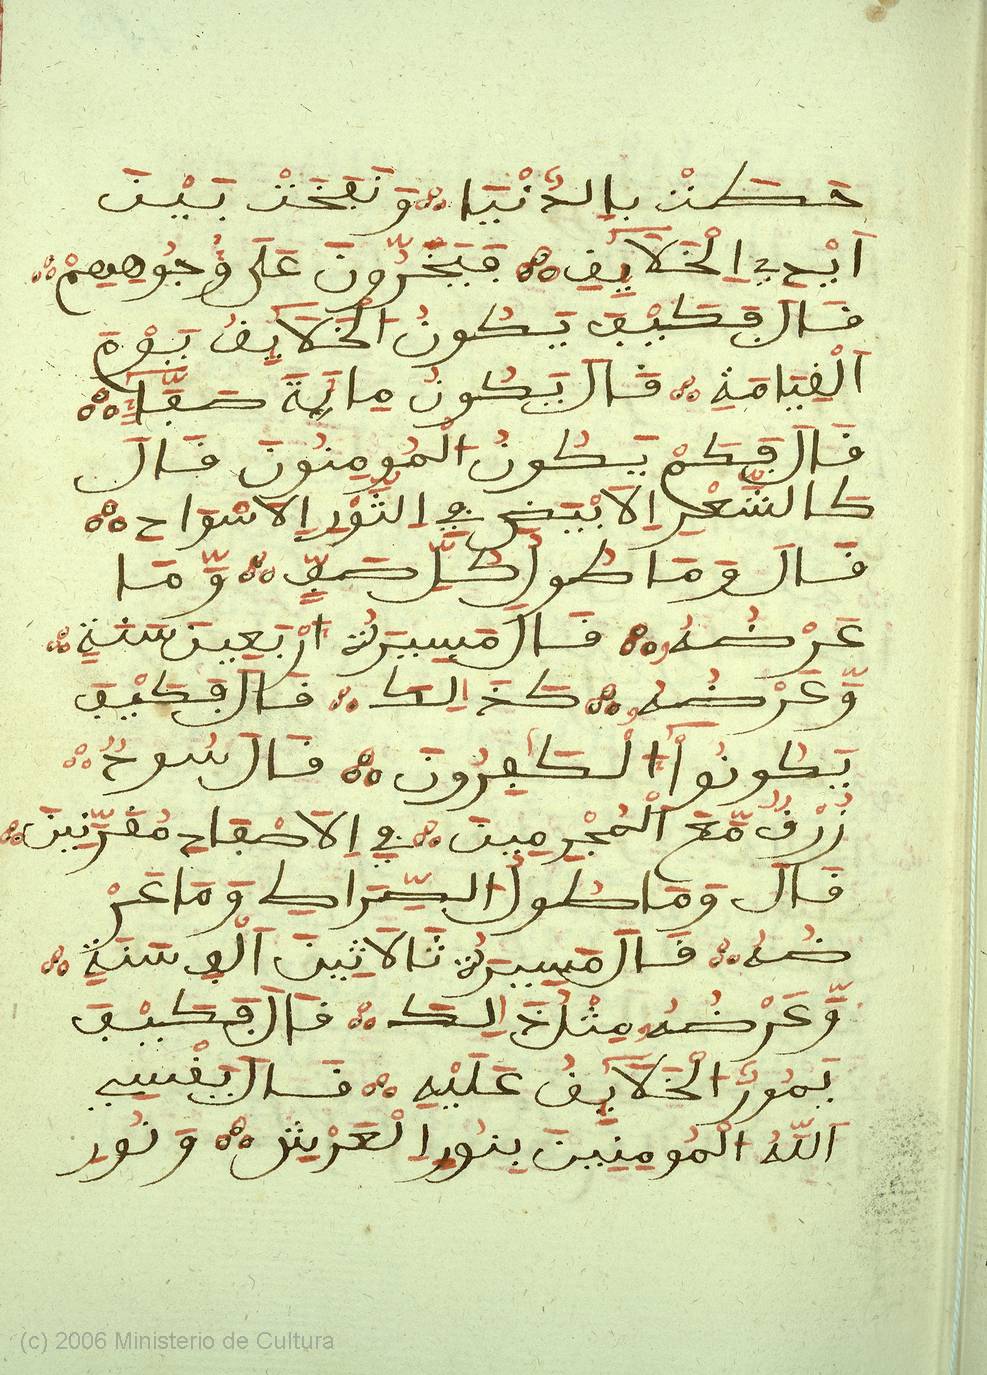 حَكَتْ بِالدُّنْيَا وَنَفِخَتْ بَيْنَ
اَيْدِي اِلْخَلَايِفِ فَيَخِرُّونَ عَلَى وُجُوهِهِمْ
فَالَ فَكَيْفَ يَكُونُ الْخَلَايِفُ يَوْمَ
اَلْفِيَامَةِ فَالَ يَكُونُ مِايَةَ صَفّاً
فَالَ فَكَمْ يَكُونُ الْمُومِنُونَ فَالَ
كَالشَّعْرِ اِلَابْيَضِ فِي اِلثَّوْرِ اِلَاسْوَدِ
فَالَ وَمَا طُولُ كُلِّ صَفٍّ وَّمَا
عَرْضُهُ فَالَ مَسِيرَةُ اَرْبَعِينَ سَنَةٍ
وَّعَرْضُهُ كَذَالِكَ فَالَ فَكَيْفَ
يَكُونُواْ الْكَافِرُونَ فَالَ سُودٌ
زُرْفٌ مَّعَ اَلْمُجْرِمِينَ فِي اِلَاصْفَادِ مُفَرَّنِينَ
فَالَ وَمَا طُولُ الصِّرَاطِ وَمَا عَرْ
ضُهُ فَالَ مَسِيرَةُ ثَالَاثِينَ اَلْفِ سَنَةٍ
وَّعَرْضُهُ مِثْلُ ذَالِكَ فَالَ فَكَيْفَ
يَمُورُ الْخَلَايِفُ عَلَيْهِ فَالَ يَفْسِي
اَللَّهُ الْمُومِنِينَ بِنُورِ اِلْعَرْشِ وَنُورِ
(c) 2006 Ministerio de Cultura